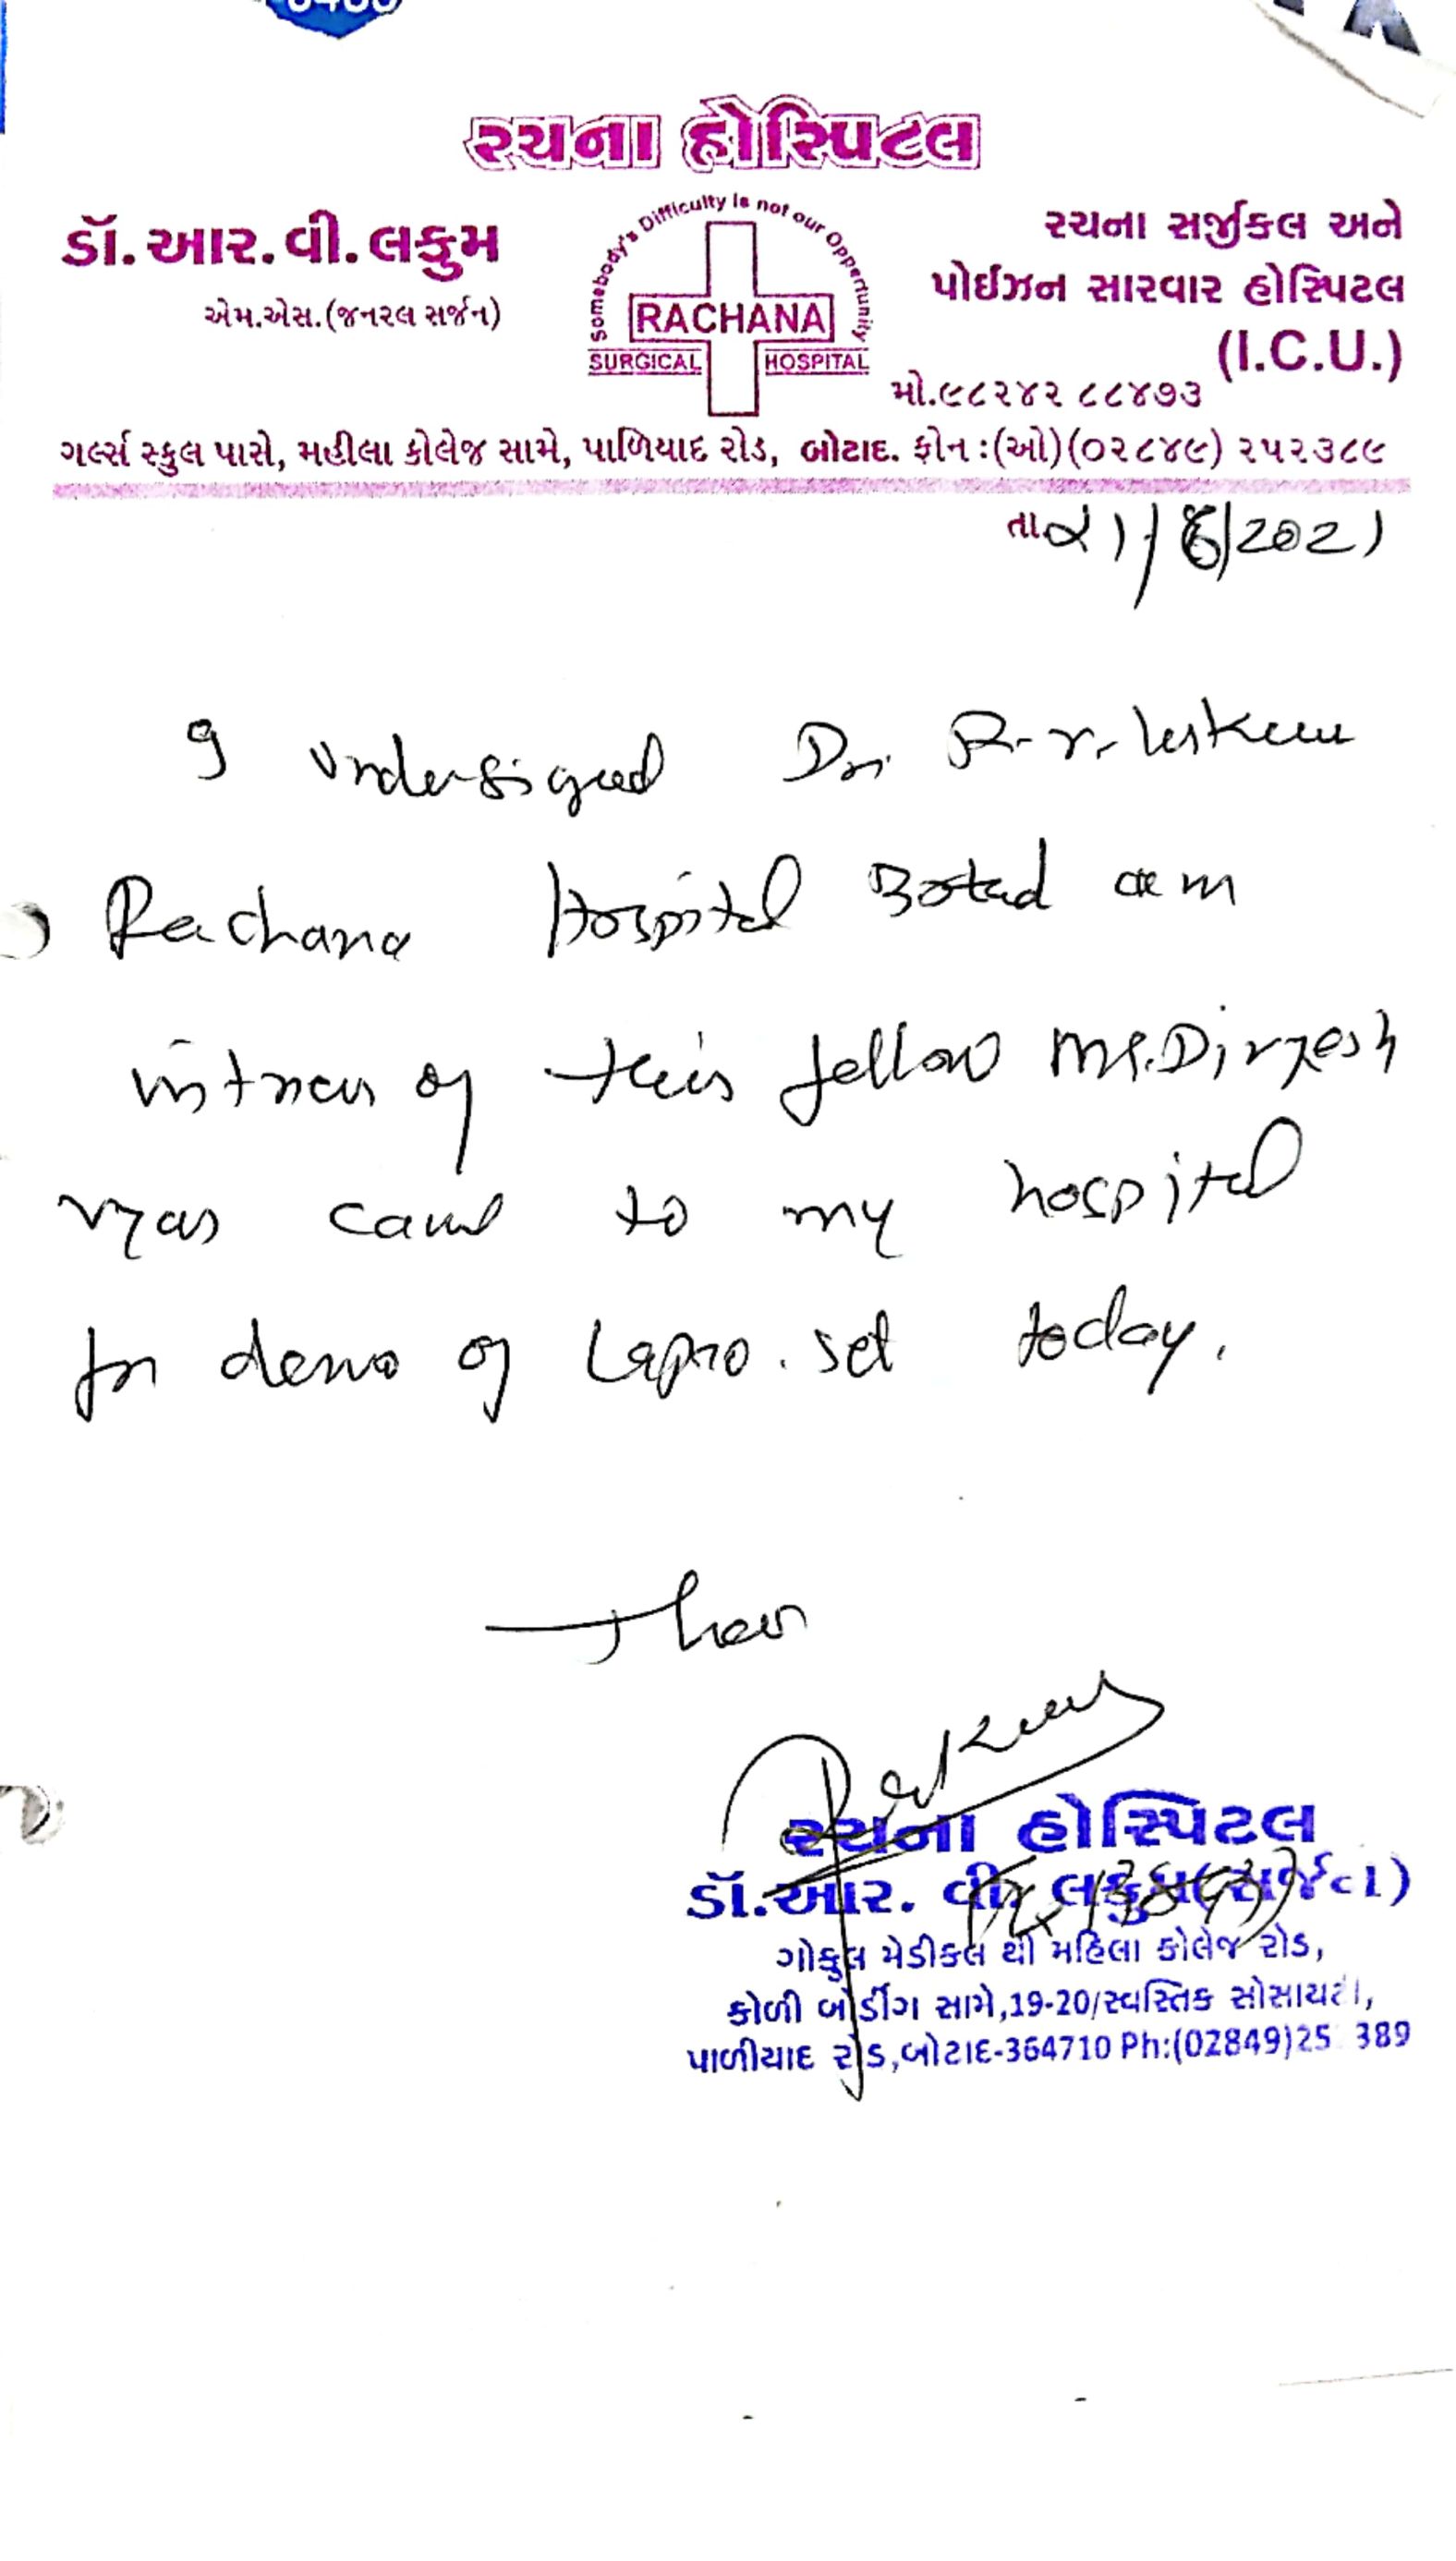 રચના હોસ્પિટલ
ડૉ. આર. વી. લકુમ
એમ.એસ.(જનરલ સર્જન)
Somebody's Difficulty is not our Oppertunity
RACHANA
SURGICAL HOSPITAL
રચના સર્જીકલ અને
પોઈઝન સારવાર હોસ્પિટલ
(I.C.U.)
મો.૯૮૨૪૨ ૮૮૪૭૩
ગર્લ્સ સ્કુલ પાસે, મહીલા કોલેજ સામે, પાળિયાદ રોડ, બોટાદ. ફોન :(ઓ)(૦૨૮૪૯) ૨૫૨૩૮૯
તા. /2021
I undersigned Dr. R. v. Lakum
Rachana Hospital Botad am
witness of this fellow Mr. Divyesh
vyas came to my hospital
for demo of Lapro. set today.
રચના હોસ્પિટલ
ડૉ. આર. વી. લકુમ(સર્જન)
ગોકુલ મેડીકલ થી મહિલા કોલેજ રોડ,
કોળી બોર્ડીંગ સામે,19-20/સ્વસ્તિક સોસાયટી,
પાળીયાદ રોડ,બોટાદ-364710 Ph:(02849)25 389